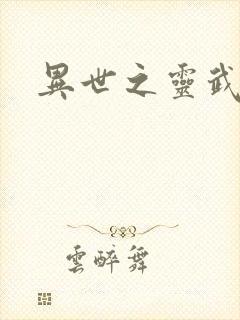 異世之靈武
雲醉舞